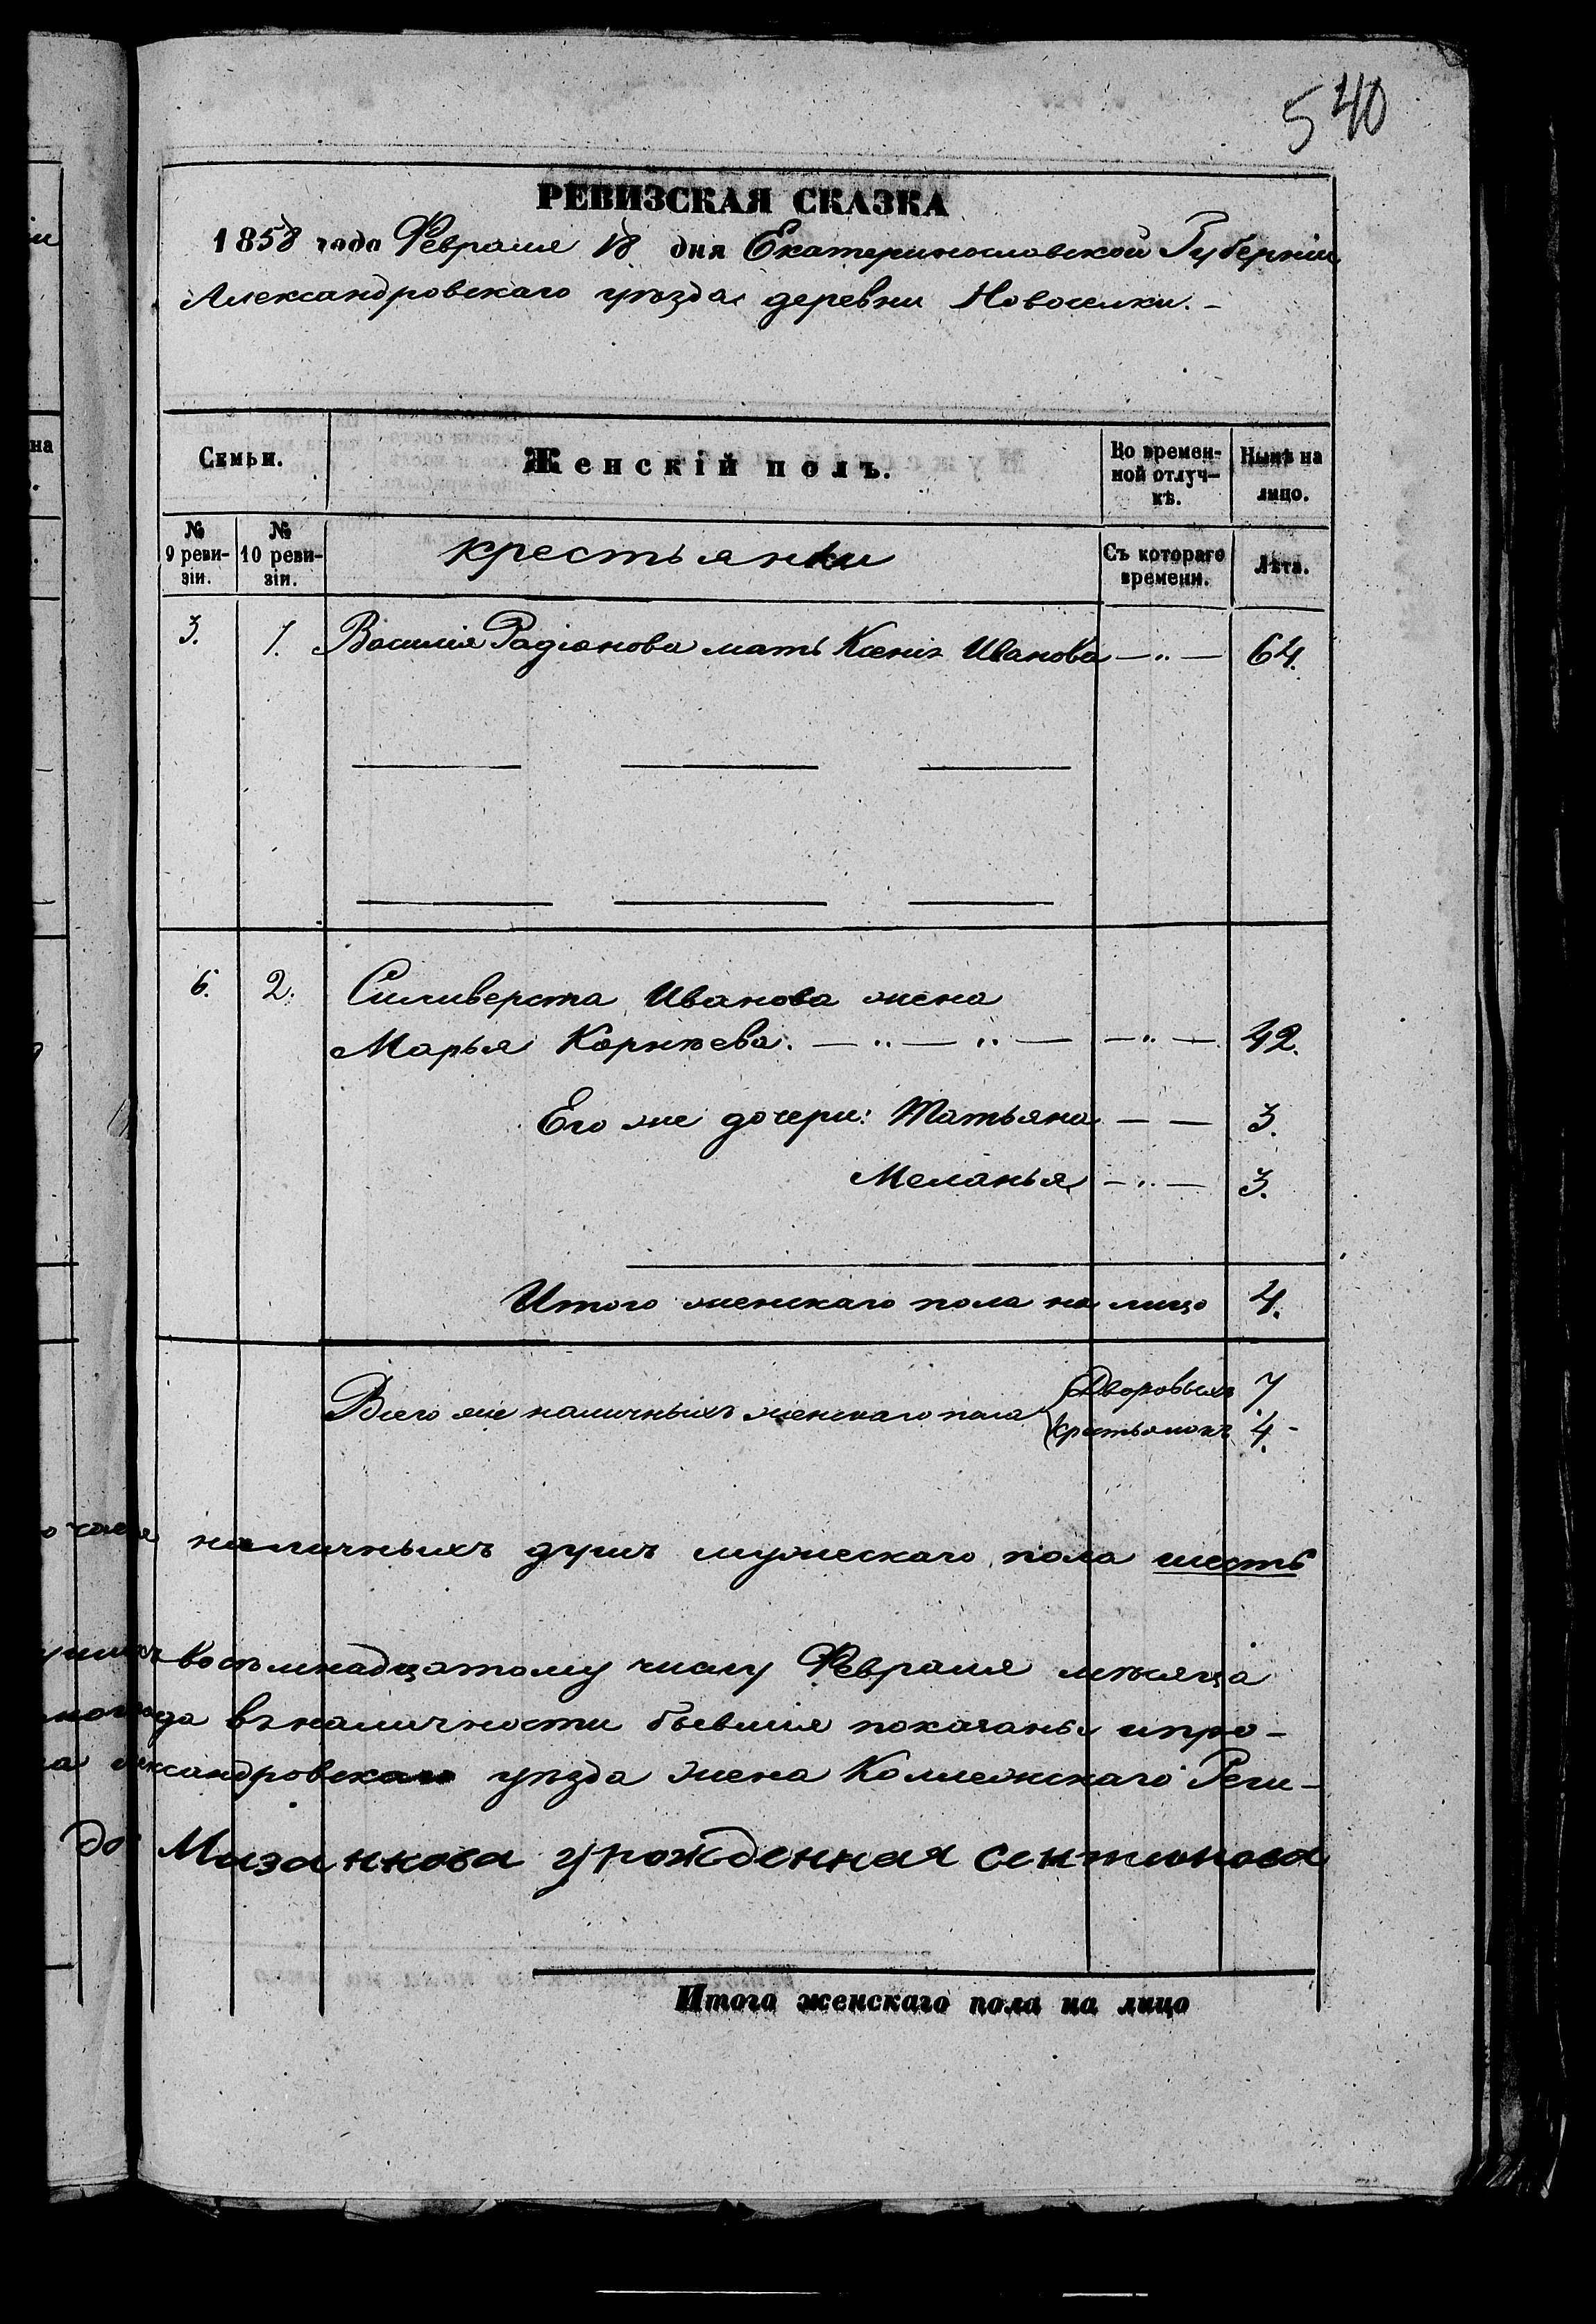 540
РЕВИЗСКАЯ СКАЗКА
1858 года Февраля 18 дня Екатеринославской Губерніи
Александровскаго уѣзда деревни Новоселки. –
Семьи.
Женскій полъ.
Во времен-
ной отлуч-
кѣ.
Нынѣ на
лицо.
№
9 реви-
зіи.
№
10 реви-
зіи.
крестьянки
Съ котораго
времени.
Лѣта.
3. 1. Василія Радіонова мать Ксенія Иванова — " — 64.
6. 2. Силиверста Иванова жена
Марья Корнѣева. — " — " — — " — 42.
Его же дочери: Татьяна — — 3.
Меланья — " — 3.
Итого женскаго пола на лицо 4.
Всего же наличныхъ женскаго пола
Дворовыхъ 7
Крестьянокъ 4. -
наличныхъ душъ мужескаго пола шесть
восьмнадцатому числу Февраля мѣсяца
да въ наличности бывшія показаны и про-
ександровскаго уѣзда жена Коллежскаго Реги-
урожденная
Итого женскаго пола на лицо